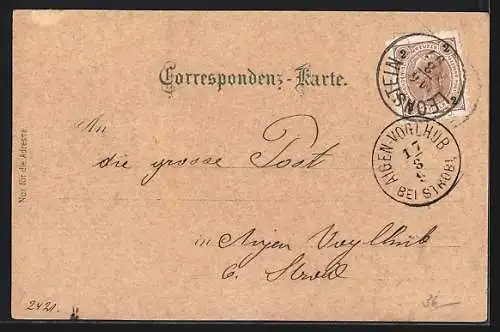 Correspondenz-Karte.
An
die grosse Post
in Aigen Voglhub
b. Strobl
Nur für die Adresse.
LEONSTEIN
AIGEN-VOGLHUB
17
BEI STROBL
2421.
36